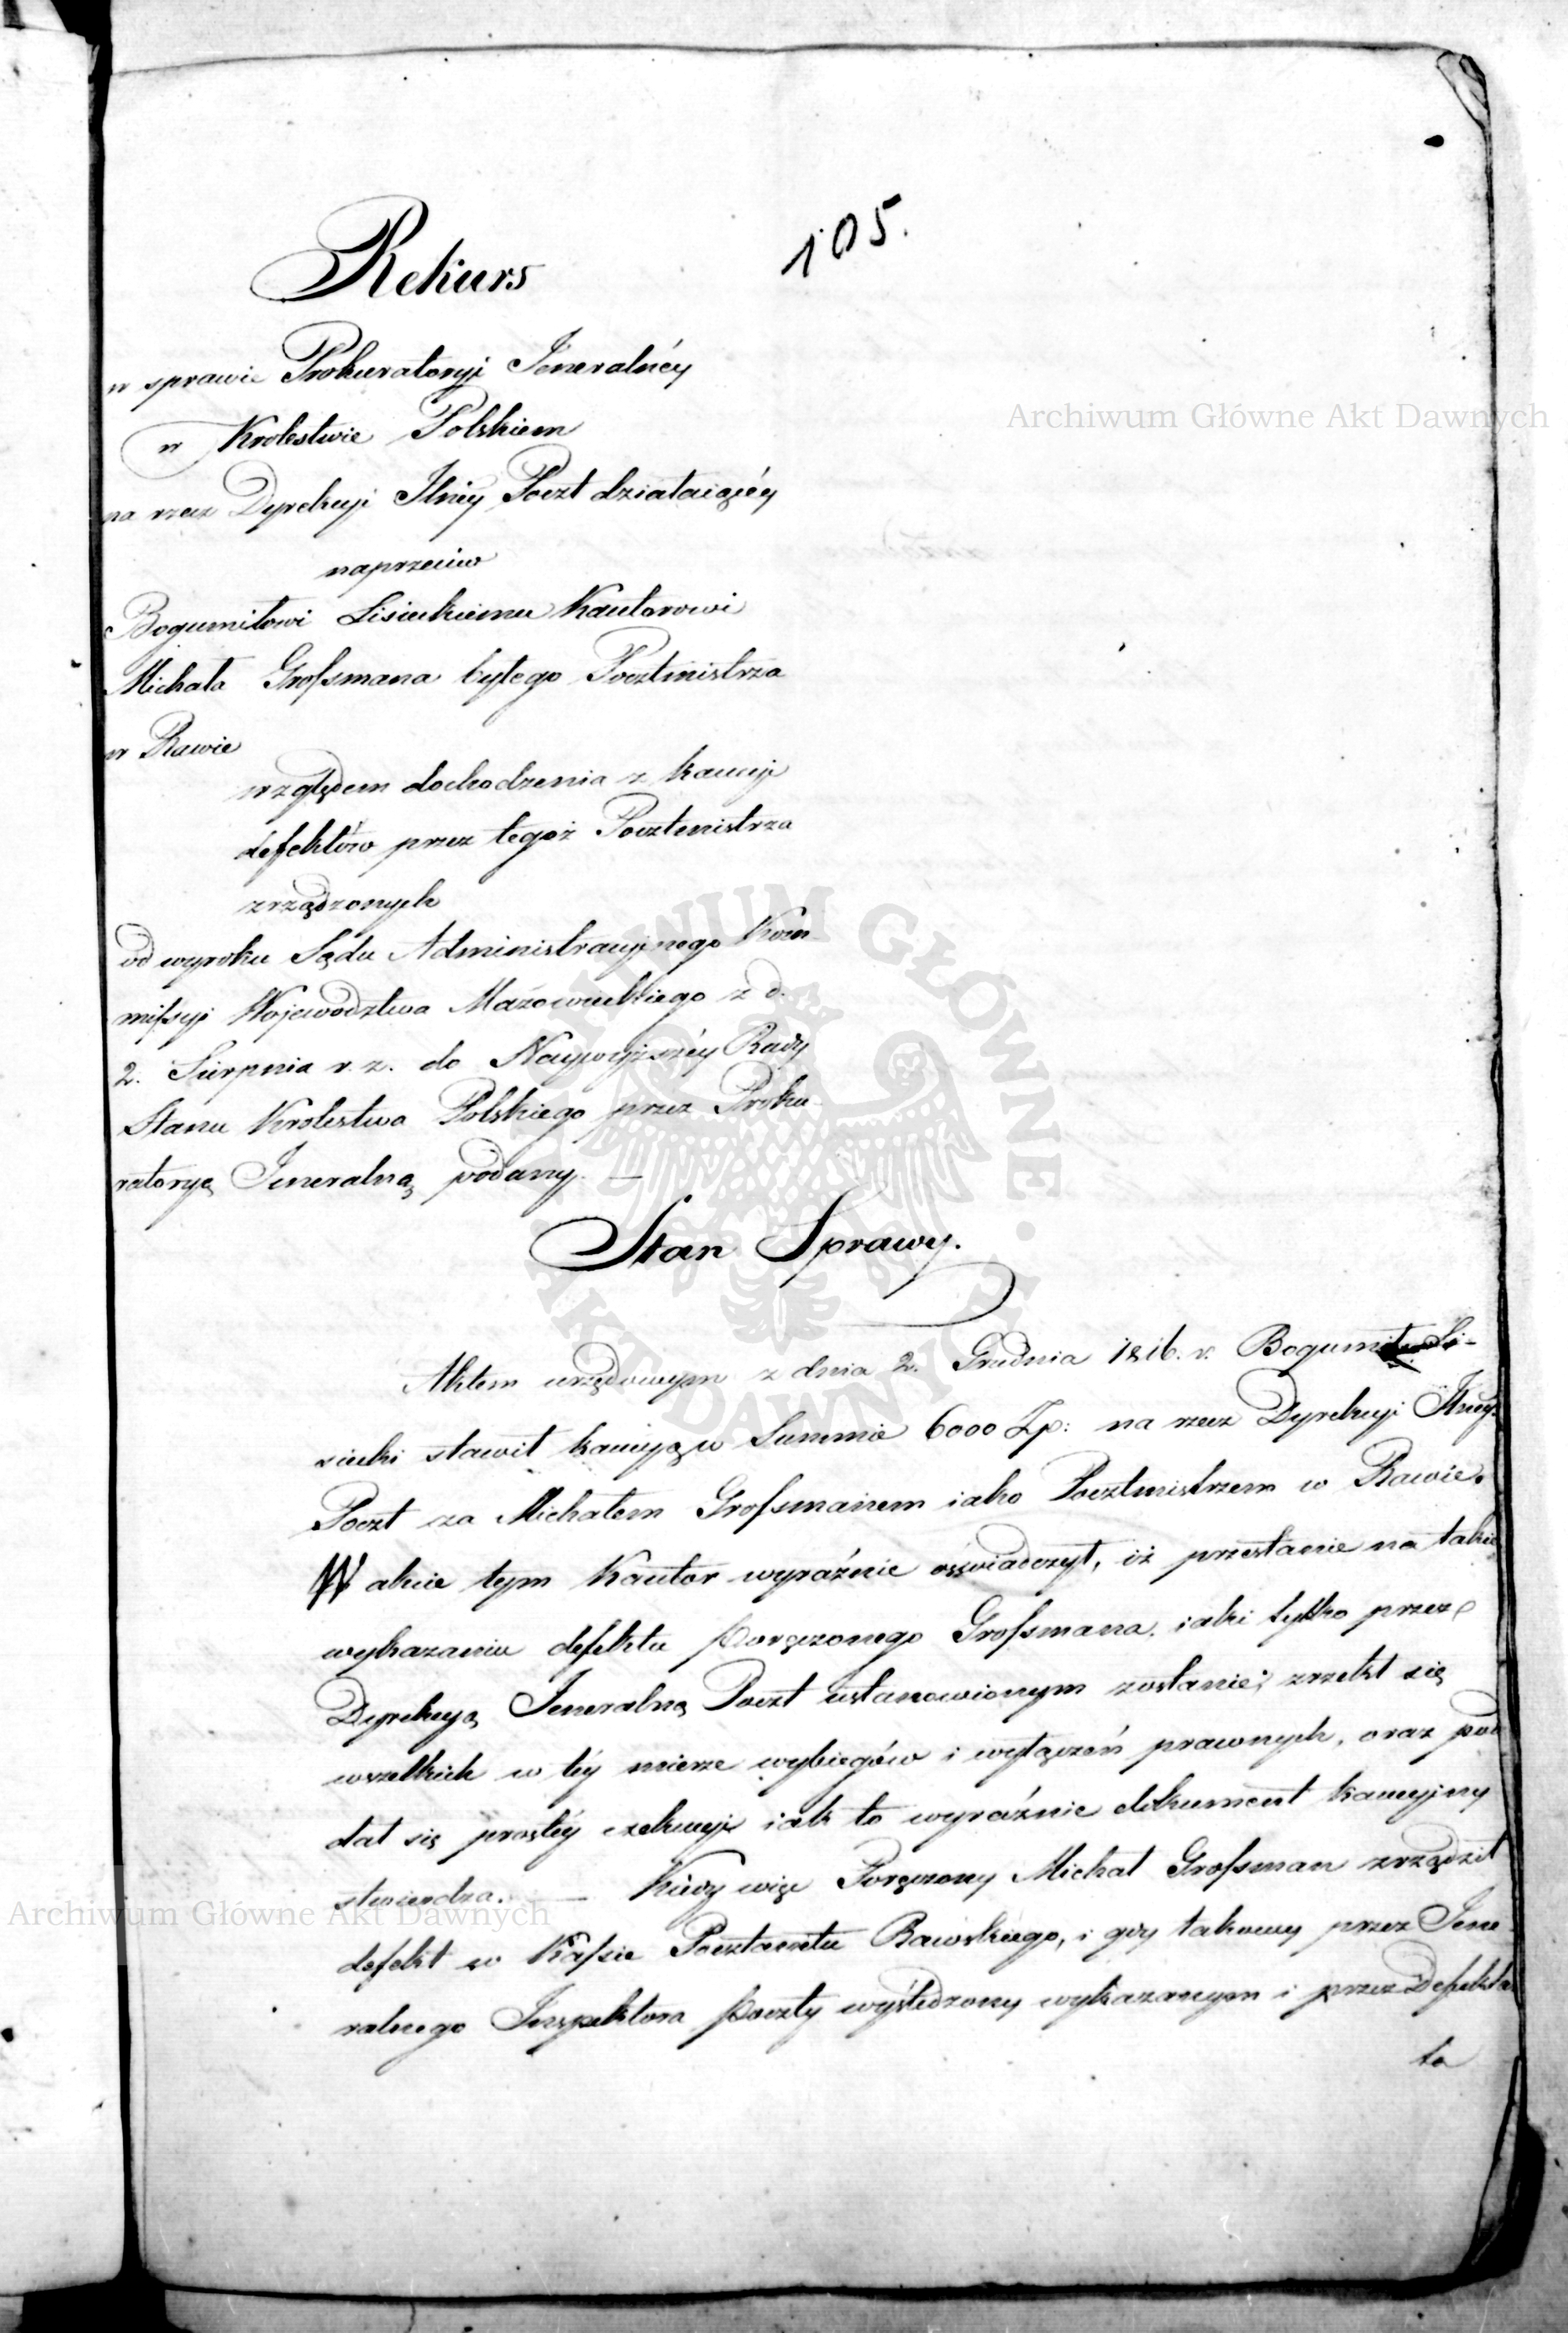 105.
Rekurs
w sprawie Prokuratoryi Jeneralnéy
w Krolestwie Polskiem
na rzecz Dyrekcyi Jlnéy Poczt działaiącéy
naprzeciw
Bogumiłowi Lisieckiemu Kautorowi
Michała Groſsmana byłego Pocztmistrza
w Rawie
względem dochodzenia z kaucyi
defektów przez tegoż Pocztmistrza
zrządzonych
od wyroku Sądu Administracyjnego Kom-
miſsyi Województwa Mazowieckiego z d.
2. Sierpnia r. z. do Naywyższéy Rady
Stanu Krolestwa Polskiego przez Proku-
ratoryą Jeneralną podany. —
Stan Sprawy.
Aktem urzędowym z dnia 2. Grudnia 1816. r. Bogumił Li-
siecki stawił kaucyą w Summie 6000 Zp: na rzecz Dyrekcyi Jlney
Poczt za Michałem Groſsmanem iako Pocztmistrzem w Rawie.
W akcie tym Kautor wyraźnie oświadczył, iż przestanie na takie
wykazaniu defektu Poręczonego Groſsmana, iaki tylko przez
Dyrekcyą Jeneralną Poczt ustanowionym zostanie; zrzekł się
wszelkich w téy mierze wybiegów i wyłączeń prawnych, oraz pod
dał się prostéy exekucyi iak to wyraźnie dokument kaucyjny
stwierdza. — Kiedy więc Poręczony Michał Groſsman zrządził
defekt w Kaſsie Pocztamtu Rawskiego, i gdy takowy przez Jene-
ralnego Inspektora Poczty wyśledzony wykazanym i przez Defekta
ta
Archiwum Główne Akt Dawnych
Archiwum Główne Akt Dawnych
ARCHIWUM GŁÓWNE · AKT DAWNYCH ·